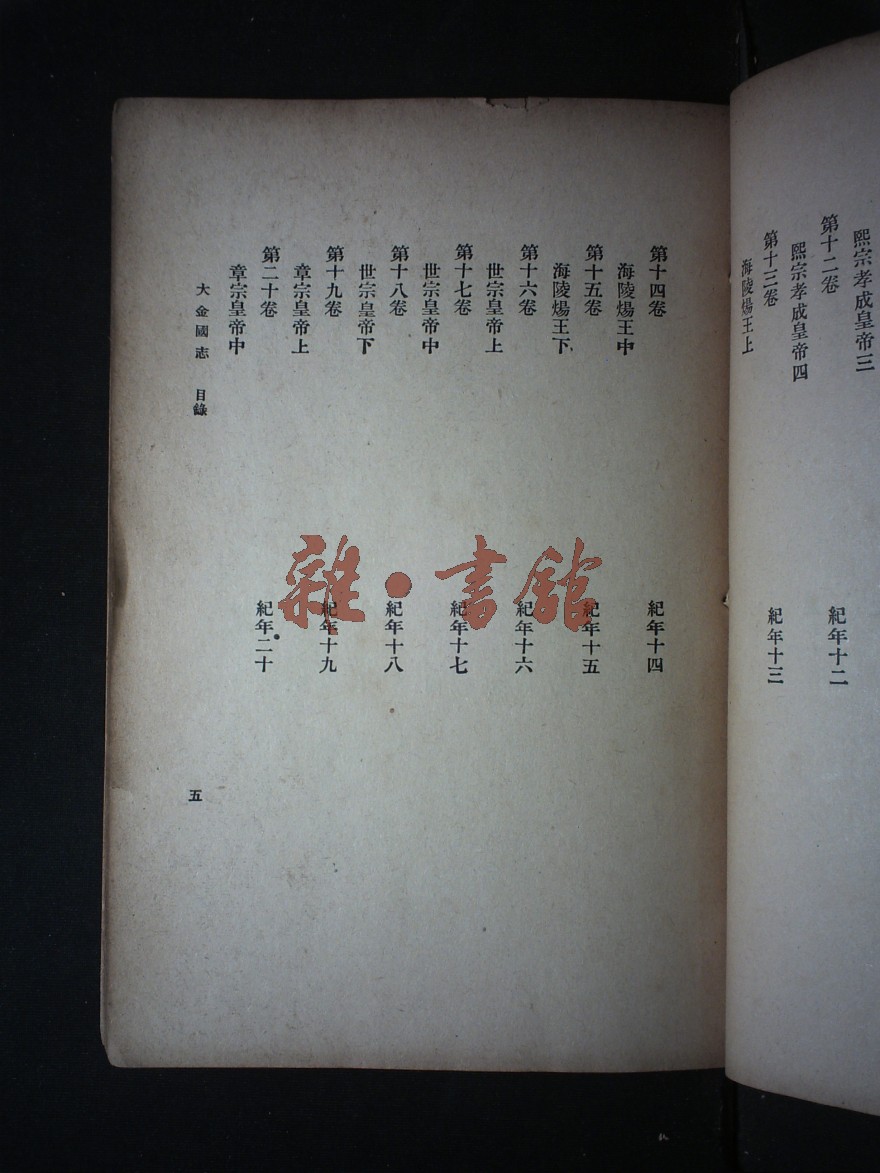 熙宗孝成皇帝三
第十二卷 紀年十二
熙宗孝成皇帝四
第十三卷 紀年十三
海陵煬王上
第十四卷 紀年十四
海陵煬王中
第十五卷 紀年十五
海陵煬王下
第十六卷 紀年十六
世宗皇帝上
第十七卷 紀年十七
世宗皇帝中
第十八卷 紀年十八
世宗皇帝下
第十九卷 紀年十九
章宗皇帝上
第二十卷 紀年二十
章宗皇帝中
大金國志 目錄
五
雜•書館